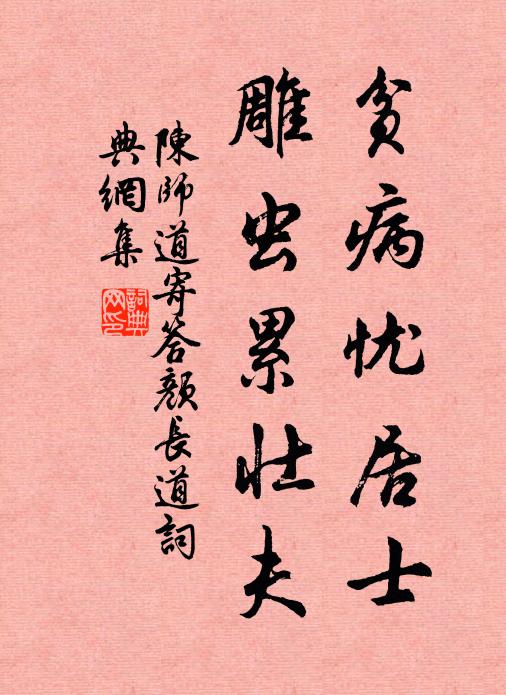 贫病忧居士
雕虫累壮夫
陳師道寄答顏長道詞
典網集
詞典网印